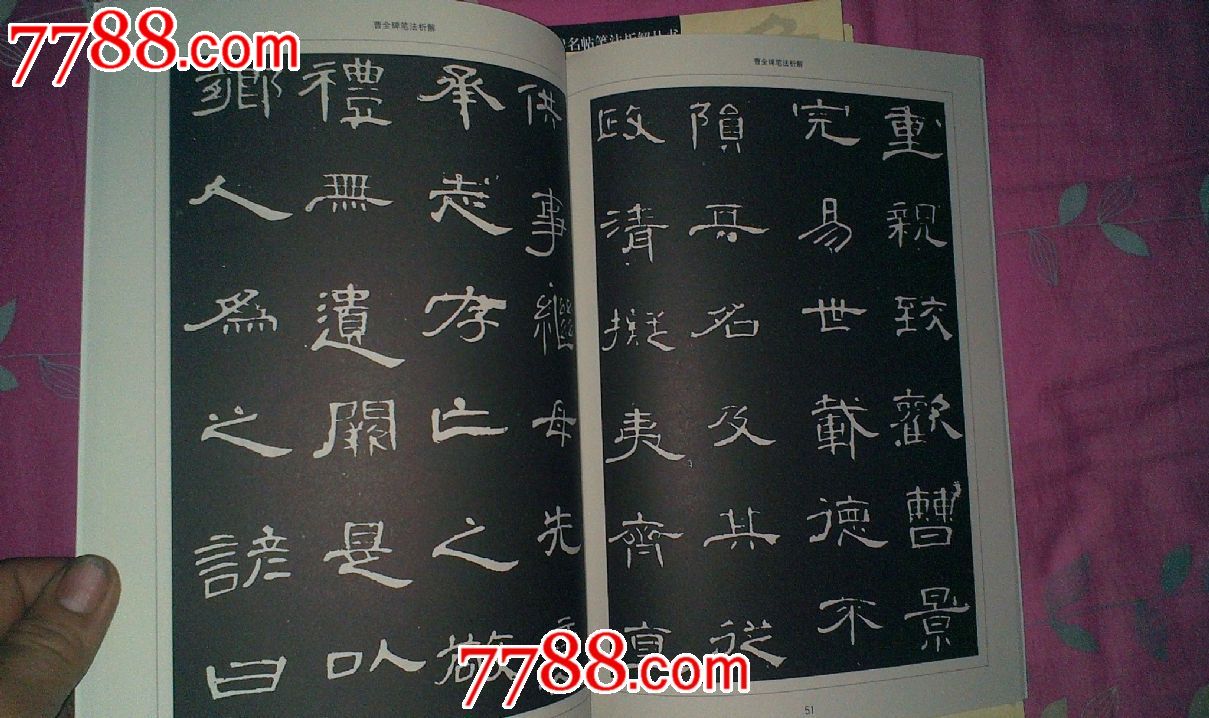 7788.com
名帖笔法析解丛书
曹全碑笔法析解
供事繼母先
承志存亡之敬
禮無遺闕是以
鄉人為之諺曰
曹全碑笔法析解
重親致歡曹景
完易世載德不
隕其名及其從
政清擬夷齊直
51
7788.com